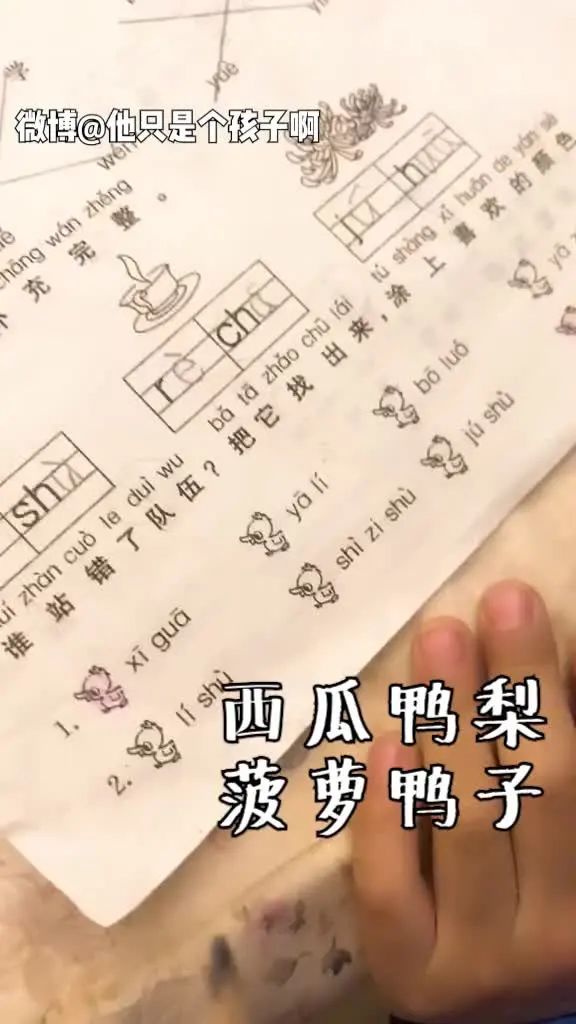 学
yuè
微博@他只是个孩子啊
chōng wán zhěng
充 完 整 。
jú huā
rè chá
shù
tú shàng xǐ huān de yán sè
bǎ tā zhǎo chū lái
把 它 找 出 来 , 涂 上 喜 欢 的 颜 色
zhàn cuò le duì wu
谁 站 错 了 队 伍 ?
1. xī guā
yā lí
bō luó
yā
2. lí shù
shì zi shù
jú shù
西瓜鸭梨
菠萝鸭子